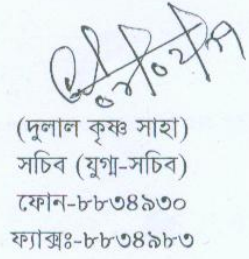 (দুলাল কৃষ্ণ সাহা)
সচিব (যুগ্ম-সচিব)
ফোন-৮৮৩৪৯৩০
ফ্যাক্সঃ-৮৮৩৪৯৮৩